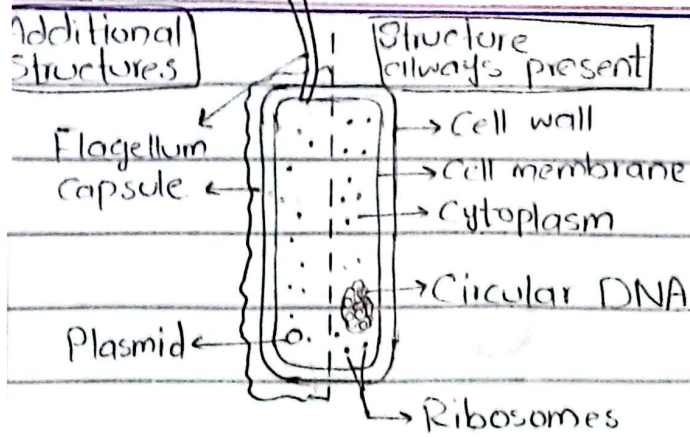 Additional
Structures
Structure
always present
Flagellum
capsule
Plasmid
Cell wall
Cell membrane
Cytoplasm
Circular DNA
Ribosomes